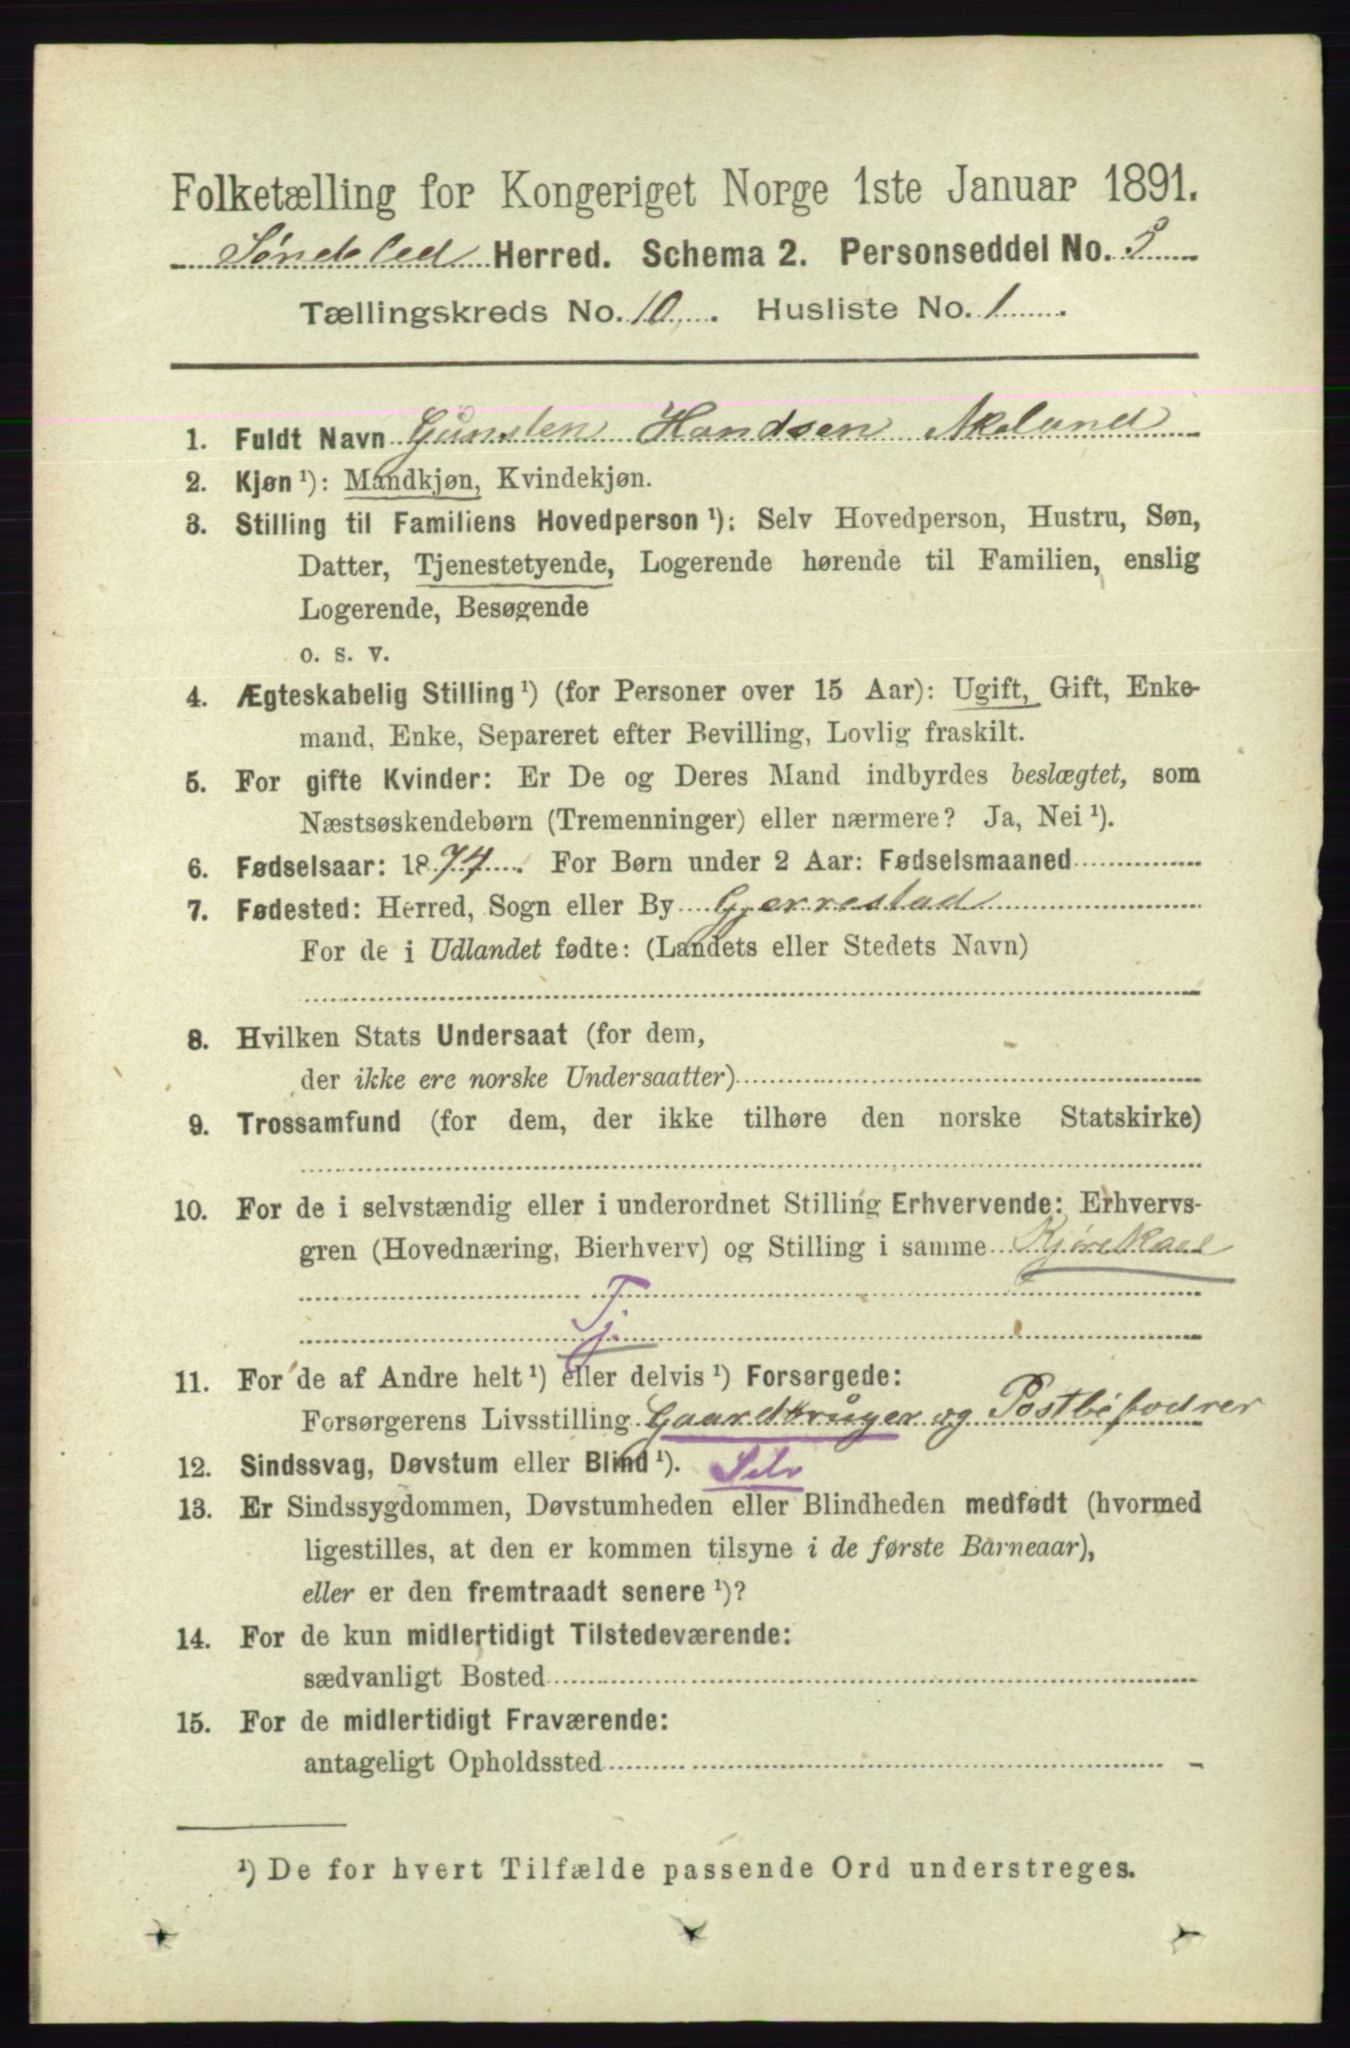 Folketælling for Kongeriget Norge 1ste Januar 1891.
Søndeled Herred. Schema 2. Personseddel No. 5
Tællingskreds No. 10. Husliste No. 1.
1. Fuldt Navn Gunsten Handsen Akeland
2. Kjøn ¹): Mandkjøn, Kvindekjøn.
3. Stilling til Familiens Hovedperson ¹): Selv Hovedperson, Hustru, Søn,
Datter, Tjenestetyende, Logerende hørende til Familien, enslig
Logerende, Besøgende
o. s. v.
4. Ægteskabelig Stilling ¹) (for Personer over 15 Aar): Ugift, Gift, Enke-
mand, Enke, Separeret efter Bevilling, Lovlig fraskilt.
5. For gifte Kvinder: Er De og Deres Mand indbyrdes beslægtet, som
Næstsøskendebørn (Tremenninger) eller nærmere? Ja, Nei ¹).
6. Fødselsaar: 1874. For Børn under 2 Aar: Fødselsmaaned
7. Fødested: Herred, Sogn eller By Gjerrestad
For de i Udlandet fødte: (Landets eller Stedets Navn)
8. Hvilken Stats Undersaat (for dem,
der ikke ere norske Undersaatter)
9. Trossamfund (for dem, der ikke tilhøre den norske Statskirke)
10. For de i selvstændig eller i underordnet Stilling Erhvervende: Erhvervs-
gren (Hovednæring, Bierhverv) og Stilling i samme Kjørekarl
Tj.
11. For de af Andre helt ¹) eller delvis ¹) Forsørgede:
Forsørgerens Livsstilling Gaardbruger og Postbefodrer
12. Sindssvag, Døvstum eller Blind ¹). Selv
13. Er Sindssygdommen, Døvstumheden eller Blindheden medfødt (hvormed
ligestilles, at den er kommen tilsyne i de første Barneaar),
eller er den fremtraadt senere ¹)?
14. For de kun midlertidigt Tilstedeværende:
sædvanligt Bosted
15. For de midlertidigt Fraværende:
antageligt Opholdssted
¹) De for hvert Tilfælde passende Ord understreges.